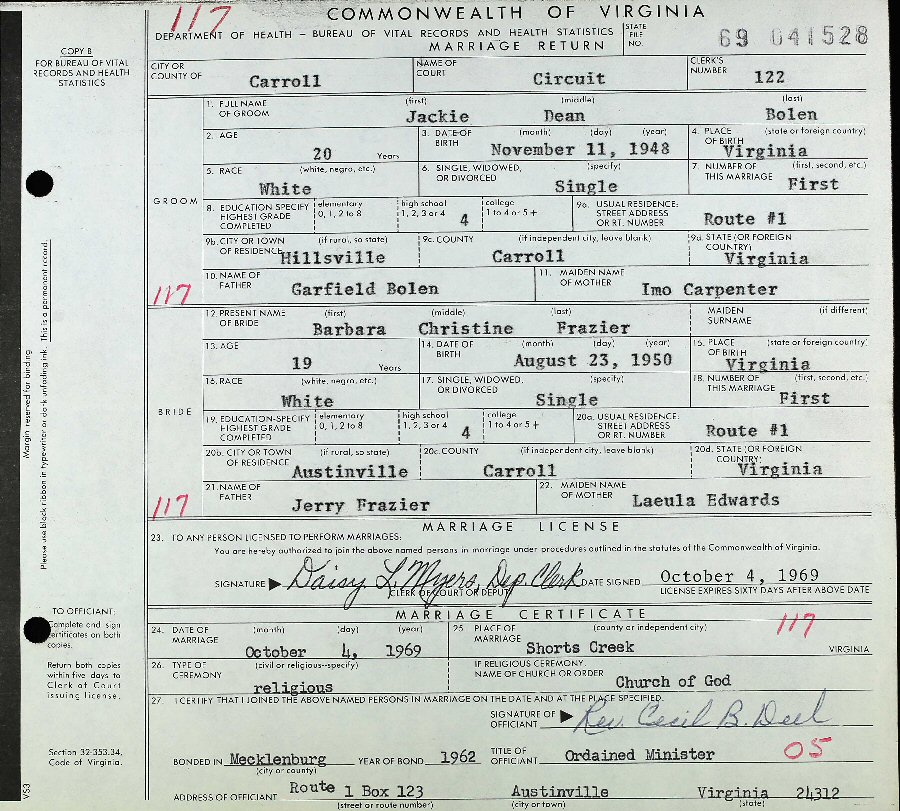 117
COMMONWEALTH OF VIRGINIA
DEPARTMENT OF HEALTH – BUREAU OF VITAL RECORDS AND HEALTH STATISTICS
MARRIAGE RETURN
STATE FILE NO. 69 041528
COPY B
FOR BUREAU OF VITAL
RECORDS AND HEALTH
STATISTICS
CITY OR COUNTY OF Carroll NAME OF COURT Circuit CLERK'S NUMBER 122
GROOM
1. FULL NAME OF GROOM (first) Jackie (middle) Dean (last) Bolen
2. AGE 20 Years 3. DATE OF BIRTH (month) (day) (year) November 11, 1948 4. PLACE OF BIRTH (state or foreign country) Virginia
5. RACE (white, negro, etc.) White 6. SINGLE, WIDOWED, OR DIVORCED (specify) Single 7. NUMBER OF THIS MARRIAGE (first, second, etc.) First
8. EDUCATION-SPECIFY HIGHEST GRADE COMPLETED elementary 0, 1, 2 to 8 high school 1, 2, 3 or 4 4 college 1 to 4 or 5+ 9a. USUAL RESIDENCE: STREET ADDRESS OR RT. NUMBER Route #1
9b. CITY OR TOWN OF RESIDENCE (if rural, so state) Hillsville 9c. COUNTY (if independent city, leave blank) Carroll 9d. STATE (OR FOREIGN COUNTRY) Virginia
10. NAME OF FATHER Garfield Bolen 11. MAIDEN NAME OF MOTHER Imo Carpenter
117
BRIDE
12. PRESENT NAME OF BRIDE (first) Barbara (middle) Christine (last) Frazier MAIDEN SURNAME (if different)
13. AGE 19 Years 14. DATE OF BIRTH (month) (day) (year) August 23, 1950 15. PLACE OF BIRTH (state or foreign country) Virginia
16. RACE (white, negro, etc.) White 17. SINGLE, WIDOWED, OR DIVORCED (specify) Single 18. NUMBER OF THIS MARRIAGE (first, second, etc.) First
19. EDUCATION-SPECIFY HIGHEST GRADE COMPLETED elementary 0, 1, 2 to 8 high school 1, 2, 3 or 4 4 college 1 to 4 or 5+ 20a. USUAL RESIDENCE: STREET ADDRESS OR RT. NUMBER Route #1
20b. CITY OR TOWN OF RESIDENCE (if rural, so state) Austinville 20c. COUNTY (if independent city, leave blank) Carroll 20d. STATE (OR FOREIGN COUNTRY) Virginia
21. NAME OF FATHER Jerry Frazier 22. MAIDEN NAME OF MOTHER Laeula Edwards
117
Margin reserved for binding
Please use black ribbon in typewriter or dark unfading ink. This is a permanent record.
MARRIAGE LICENSE
23. TO ANY PERSON LICENSED TO PERFORM MARRIAGES:
You are hereby authorized to join the above named persons in marriage under procedures outlined in the statutes of the Commonwealth of Virginia.
SIGNATURE Daisy L. Myers, Dep. Clerk DATE SIGNED October 4, 1969
CLERK OF COURT OR DEPUTY LICENSE EXPIRES SIXTY DAYS AFTER ABOVE DATE
MARRIAGE CERTIFICATE
TO OFFICIANT:
Complete and sign
certificates on both
copies.
Return both copies
within five days to
Clerk of Court
issuing license.
Section 32-353.34,
Code of Virginia.
VS3
24. DATE OF MARRIAGE (month) (day) (year) October 4, 1969 25. PLACE OF MARRIAGE (county or independent city) Shorts Creek 117 VIRGINIA
26. TYPE OF CEREMONY (civil or religious--specify) religious IF RELIGIOUS CEREMONY, NAME OF CHURCH OR ORDER Church of God
27. I CERTIFY THAT I JOINED THE ABOVE NAMED PERSONS IN MARRIAGE ON THE DATE AND AT THE PLACE SPECIFIED.
SIGNATURE OF OFFICIANT Rev. Cecil B. Deel
BONDED IN Mecklenburg (city or county) YEAR OF BOND 1962 TITLE OF OFFICIANT Ordained Minister 05
ADDRESS OF OFFICIANT Route 1 Box 123 Austinville Virginia 24312
(street or route number) (city or town) (state)